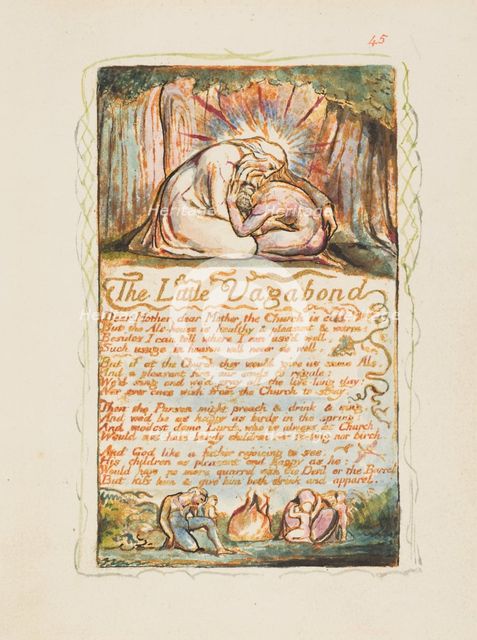 45
The Little Vagabond
Dear Mother, dear Mother, the Church is cold
But the Ale-house is healthy & pleasant & warm:
Besides I can tell where I am used well,
Such usage in heaven will never do well.
But if at the Church they would give us some Ale
And a pleasant fire our souls to regale:
We'd sing and we'd pray all the live-long day:
Nor ever once wish from the Church to stray
Then the Parson might preach & drink & sing
And we'd be as happy as birds in the spring
And modest dame Lurch, who is always at Church
Would not have bandy children nor fasting nor birch.
And God like a father rejoicing to see
His children as pleasant and happy as he:
Would have no more quarrel with the Devil or the Barrel
But kiss him & give him both drink and apparel.